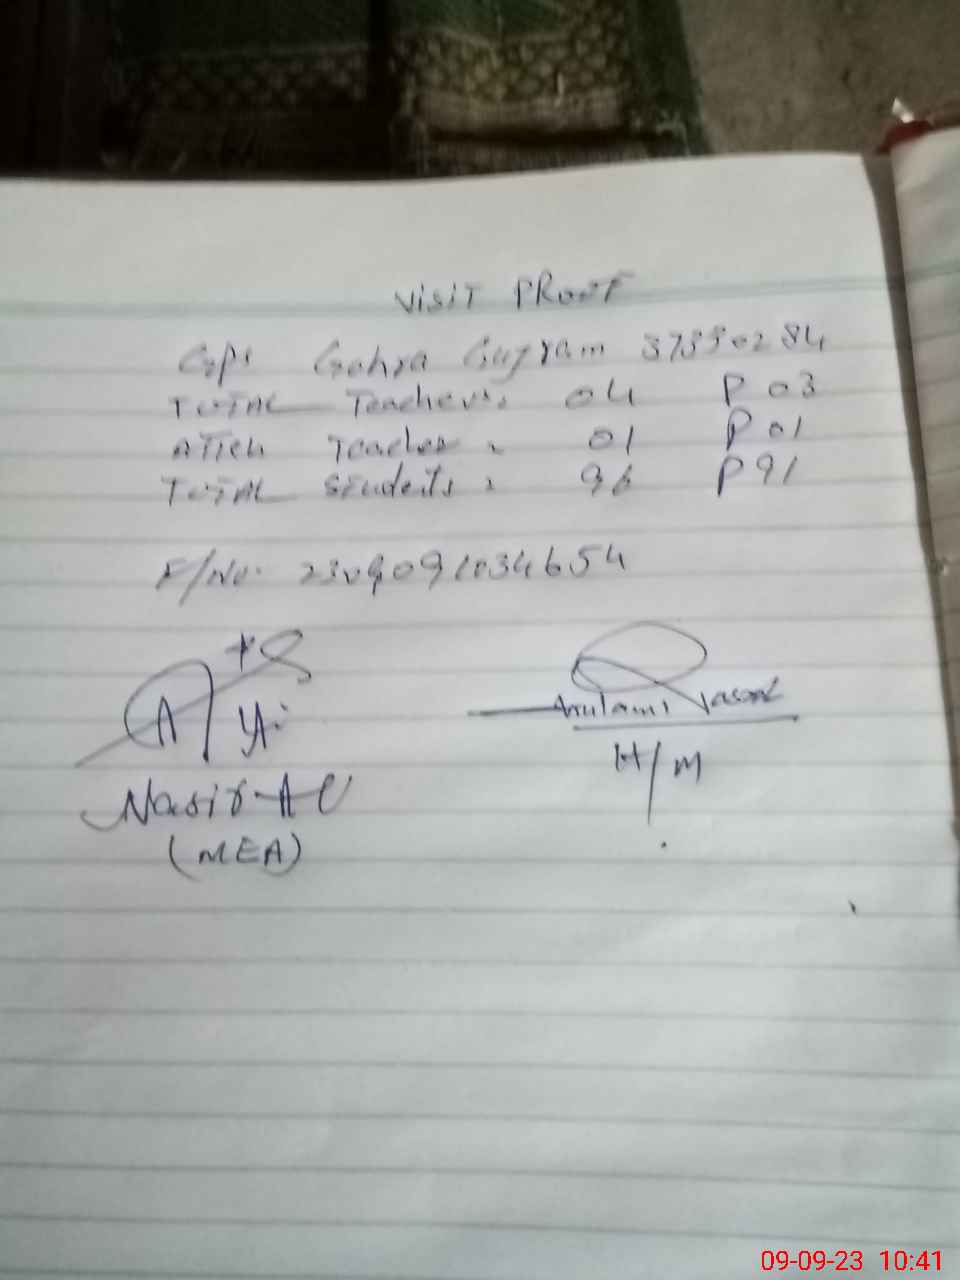 VISIT PROOF
GGPS Gohra Gujram 37330284
TOTAL Teachers: 04 P 03
ATTEN Teacher: 01 P 01
TOTAL Students: 96 P 91
F/No. 2309091034654
Nasir Ali
(MEA)
H/M
09-09-23 10:41